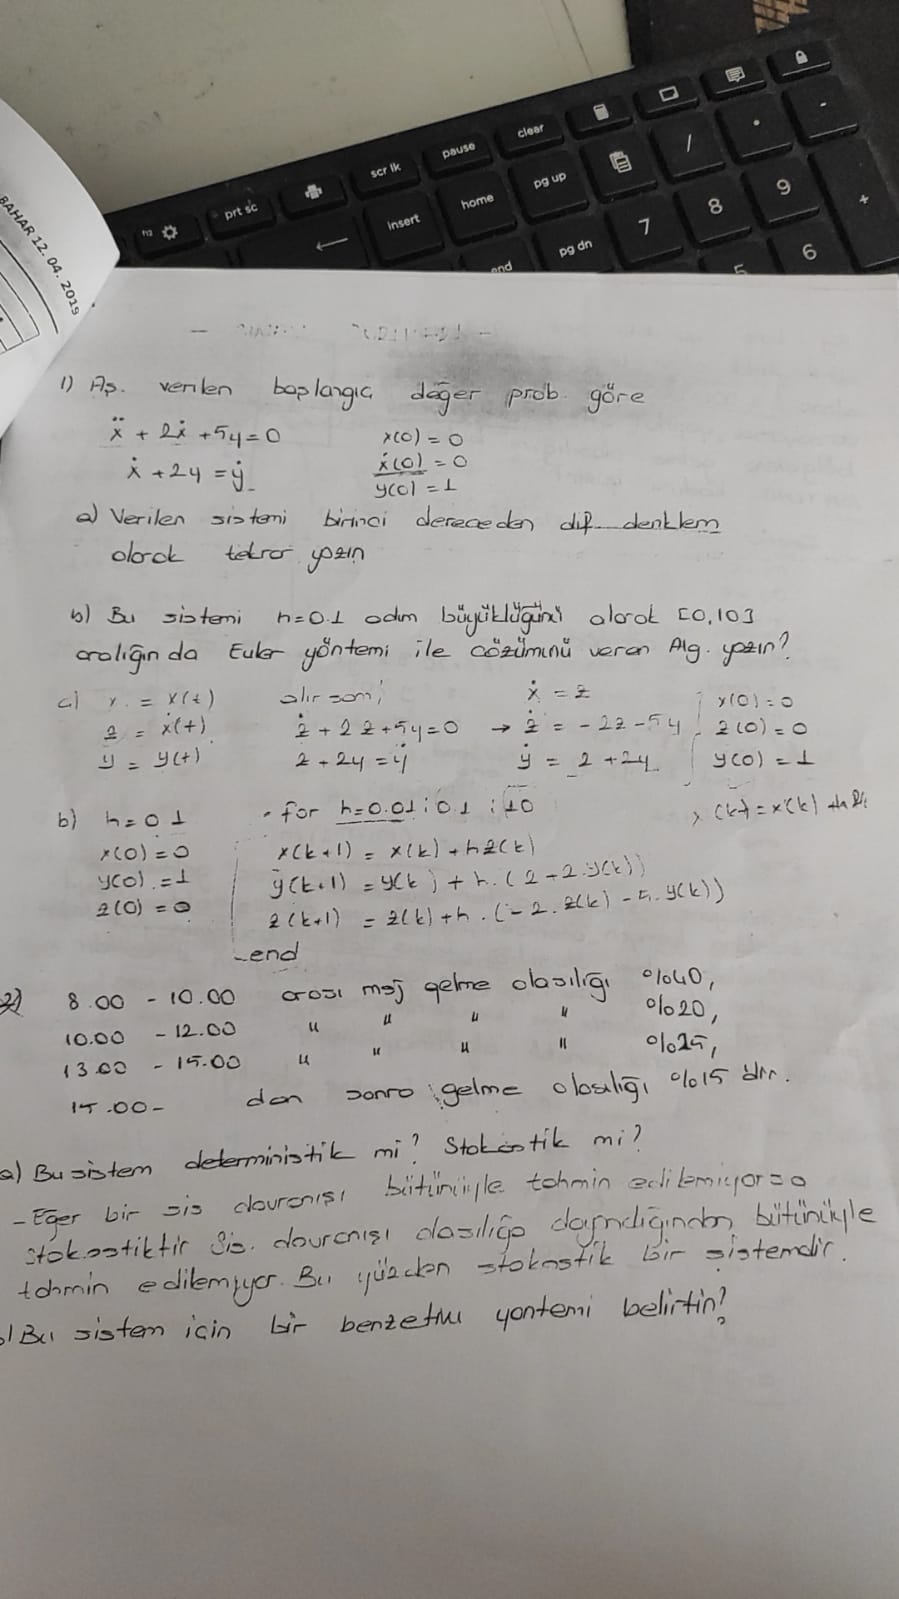 BAHAR 12.04.2019
prt sc
scr lk
pause
clear
insert
home
pg up
/
-
end
pg dn
7
8
9
+
5
6
1) Aş. verilen başlangıç değer prob. göre
ẍ + 2ẋ + 5y = 0 x(0) = 0
ẋ + 2y = ẏ ẋ(0) = 0
y(0) = 1
a) Verilen sistemi birinci dereceden dif denklem
olarak tekrar yazın
b) Bu sistemi h=0.1 adım büyüklüğünü alarak [0,10]
aralığında Euler yöntemi ile çözümünü veren Alg. yazın?
a) x = x(t) alırsam; ẋ = z x(0) = 0
z = ẋ(t) ż + 2z + 5y = 0 → ż = -2z - 5y z(0) = 0
y = y(t) z + 2y = ẏ ẏ = z + 2y y(0) = 1
b) h = 0.1 for h=0.01:0.1:10
x(0) = 0 x(k+1) = x(k) + hz(k)
y(0) = 1 y(k+1) = y(k) + h.(z+2.y(k))
z(0) = 0 z(k+1) = z(k) + h.(-2.z(k) - 5.y(k))
end
2) 8.00 - 10.00 arası msj gelme olasılığı %40,
10.00 - 12.00 " " " " %20,
13.00 - 15.00 " " " " %25,
15.00- dan sonra gelme olasılığı %15 dir.
a) Bu sistem deterministik mi? Stokastik mi?
- Eğer bir sis davranışı bütünüyle tahmin edilemiyorsa
stokastiktir Sis. davranışı olasılığa dayandığından bütünüyle
tahmin edilemiyor. Bu yüzden stokastik bir sistemdir.
b) Bu sistem için bir benzetim yöntemi belirtin?